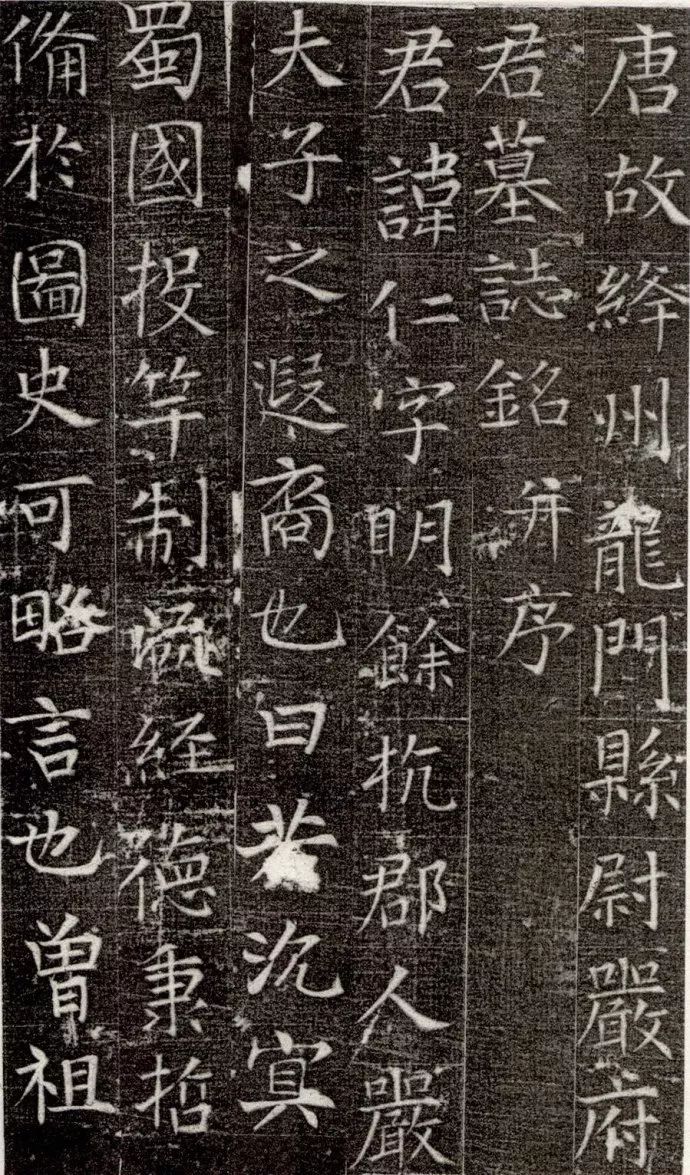 唐故絳州龍門縣尉嚴府
君墓誌銘并序
君諱仁字明餘杭郡人嚴
夫子之遐裔也曰若沉冥
蜀國投竿制経德秉哲
俻於圖史可略言也曾祖